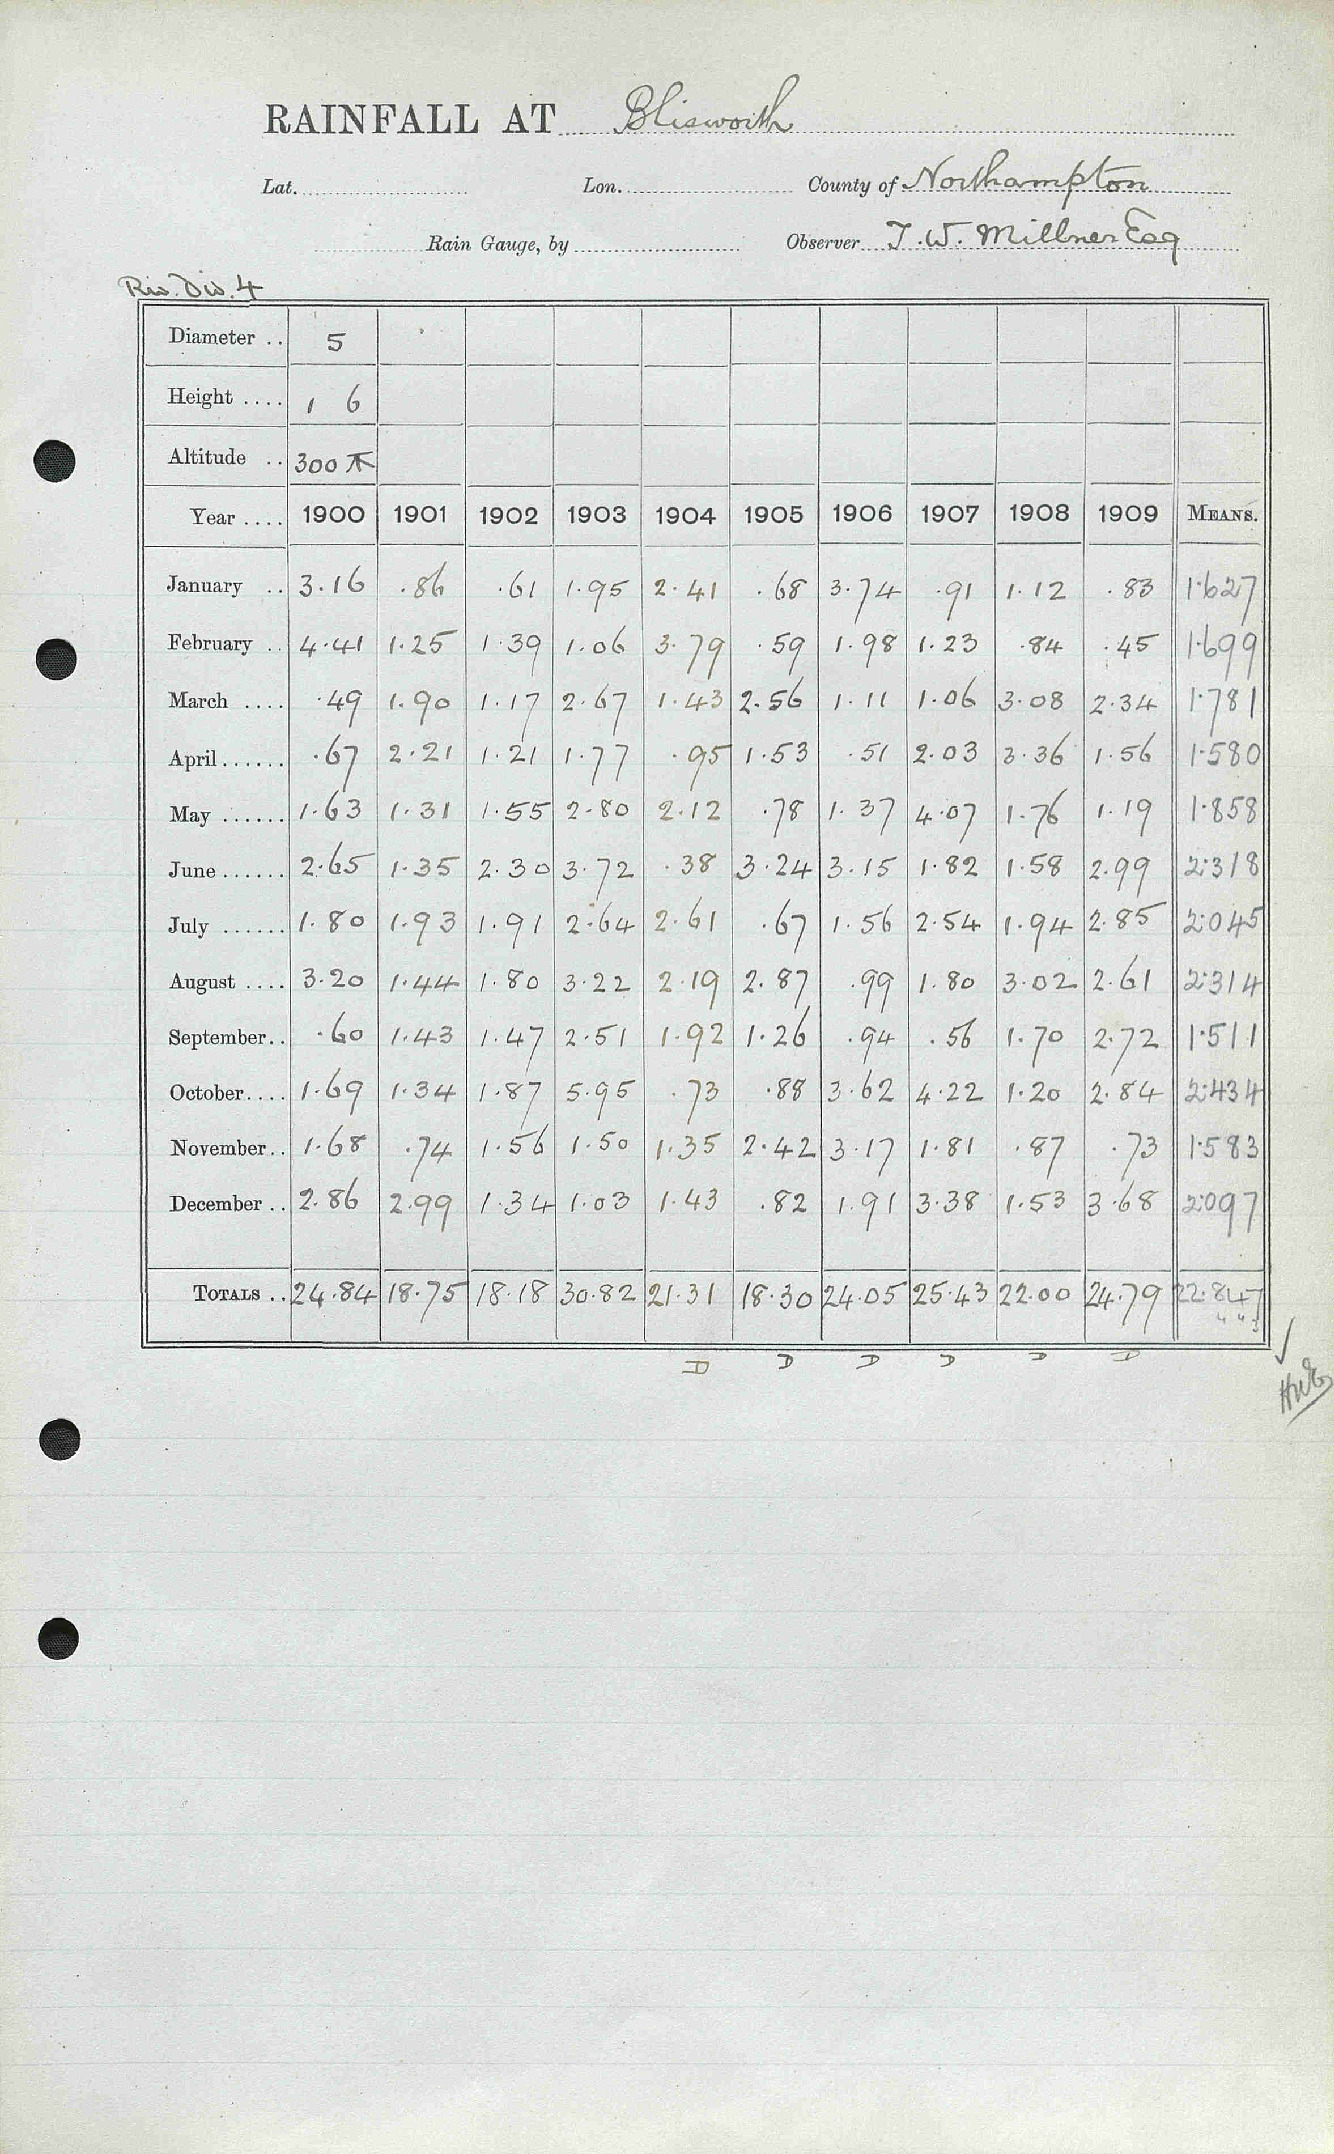 RAINFALL AT Blisworth
Lat. Lon. County of Northampton
Rain Gauge, by Observer J. W. Millner Esq
Riv. Div. 4
Diameter .. 5
Height .... 1 6
Altitude .. 300 ft
Year .... 1900 1901 1902 1903 1904 1905 1906 1907 1908 1909 MEANS.
January .. 3.16 .86 .61 1.95 2.41 .68 3.74 .91 1.12 .83 1.627
February .. 4.41 1.25 1.39 1.06 3.79 .59 1.98 1.23 .84 .45 1.699
March .... .49 1.90 1.17 2.67 1.43 2.56 1.11 1.06 3.08 2.34 1.781
April...... .67 2.21 1.21 1.77 .95 1.53 .51 2.03 3.36 1.56 1.580
May ...... 1.63 1.31 1.55 2.80 2.12 .78 1.37 4.07 1.76 1.19 1.858
June...... 2.65 1.35 2.30 3.72 .38 3.24 3.15 1.82 1.58 2.99 2.318
July ...... 1.80 1.93 1.91 2.64 2.61 .67 1.56 2.54 1.94 2.85 2.045
August .... 3.20 1.44 1.80 3.22 2.19 2.87 .99 1.80 3.02 2.61 2.314
September.. .60 1.43 1.47 2.51 1.92 1.26 .94 .56 1.70 2.72 1.511
October.... 1.69 1.34 1.87 5.95 .73 .88 3.62 4.22 1.20 2.84 2.434
November.. 1.68 .74 1.56 1.50 1.35 2.42 3.17 1.81 .87 .73 1.583
December .. 2.86 2.99 1.34 1.03 1.43 .82 1.91 3.38 1.53 3.68 2.097
TOTALS .. 24.84 18.75 18.18 30.82 21.31 18.30 24.05 25.43 22.00 24.79 22.847
D D D D D D